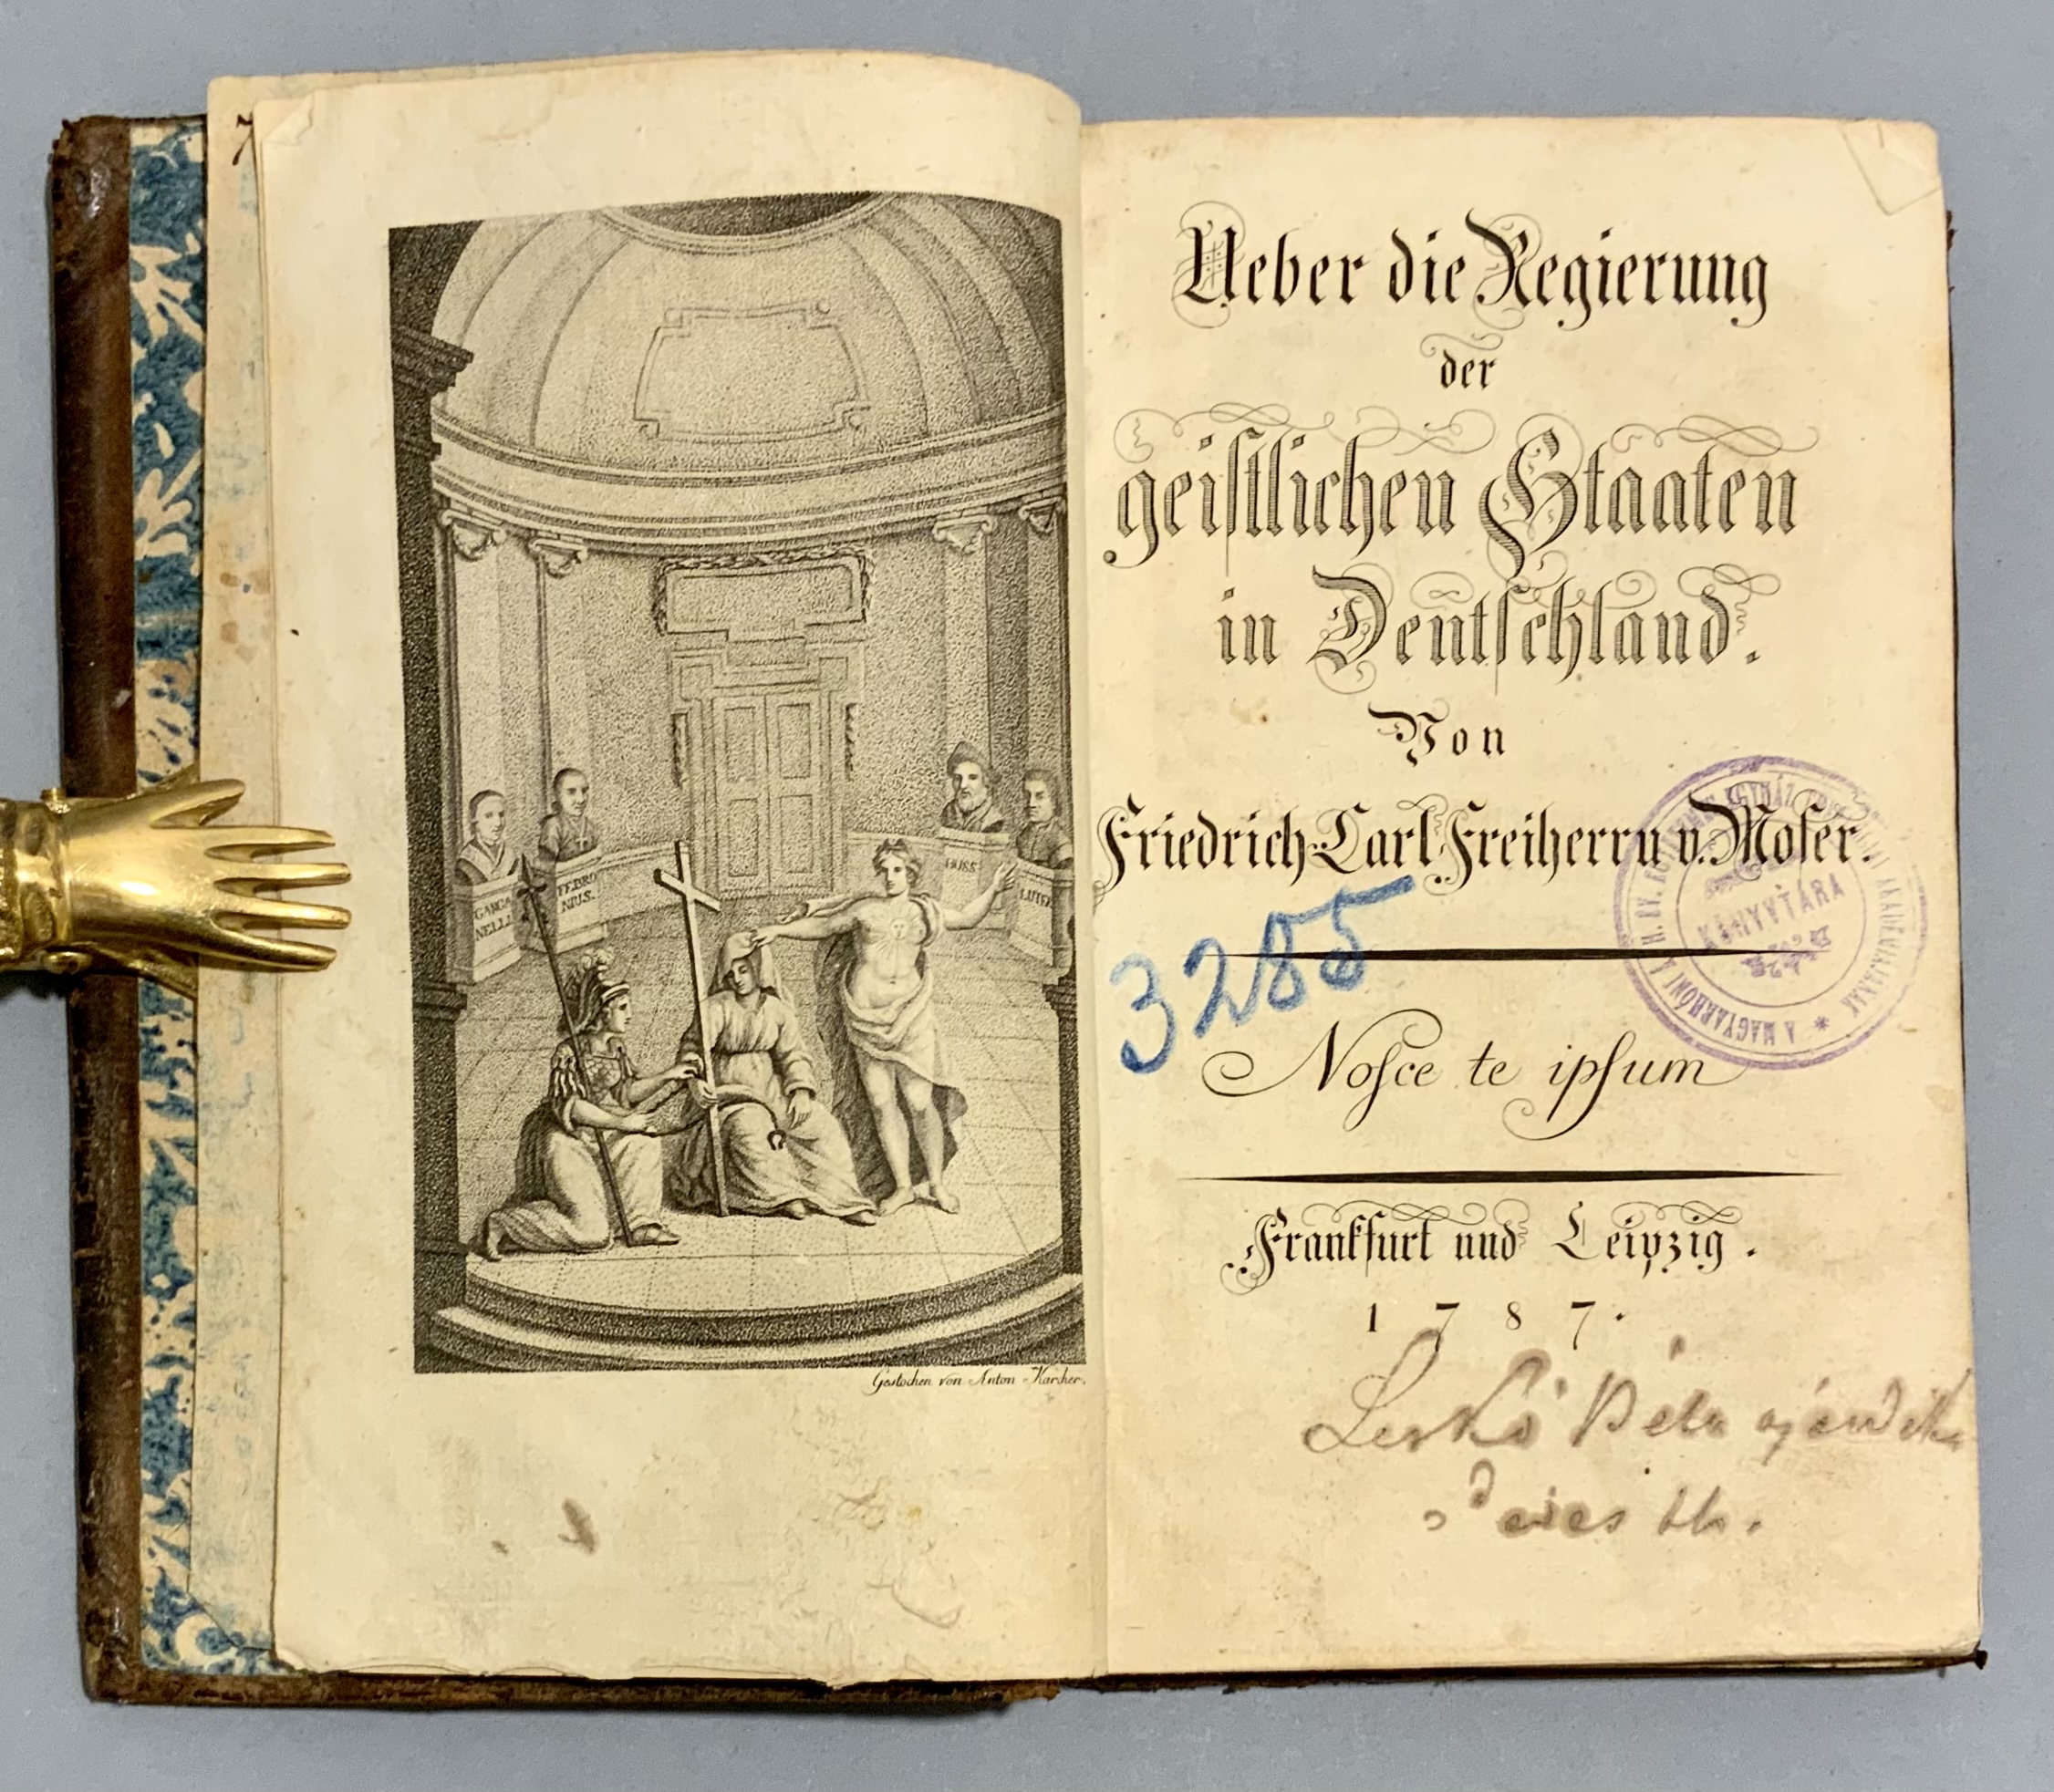 7
GANGA
NELLI
FEBRO
NIUS.
HUSS
LUTH
Gestochen von Anton Karcher.
Ueber die Regierung
der
geiſtlichen Staaten
in Deutſchland.
Von
Friedrich Carl Freiherrn v. Moſer.
KÖNYVTÁRA
3285
Noſce te ipſum
Frankfurt und Leipzig.
1787.
Leskó Béla ajándéka